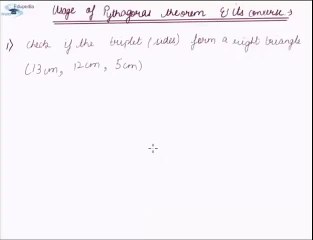 Eduvedia
Usage of Pythagoras theorem & its converse →
1) Check if the triplet (sides) form a right triangle
(13 cm, 12 cm, 5 cm)